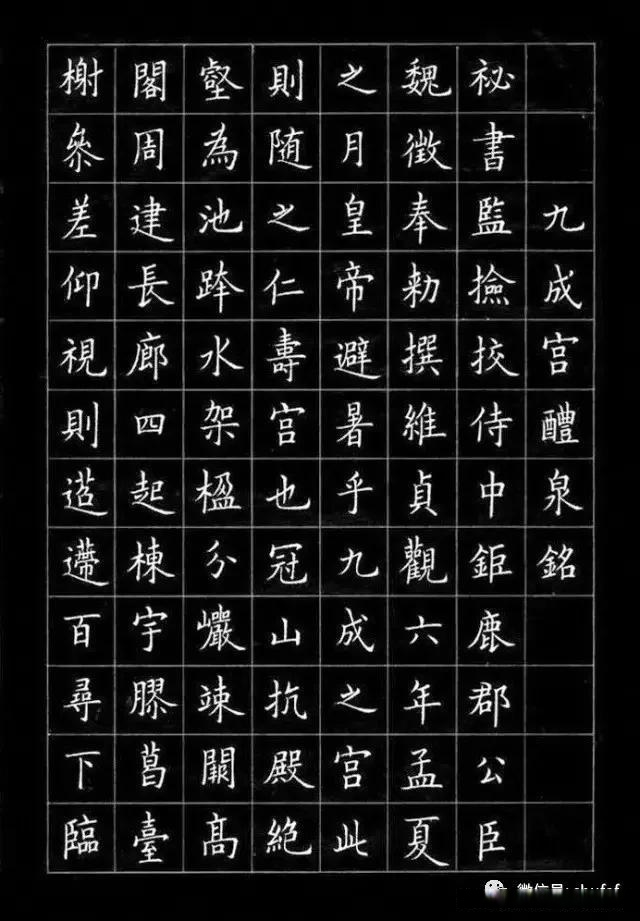 九成宫醴泉銘
祕書監撿挍侍中鉅鹿郡公臣
魏徵奉勑撰維貞觀六年孟夏
之月皇帝避暑乎九成之宫此
則随之仁壽宫也冠山抗殿絶
壑為池跨水架楹分巖竦闕高
閣周建長廊四起棟宇膠葛臺
榭叅差仰視則迢遰百尋下臨
微信号: